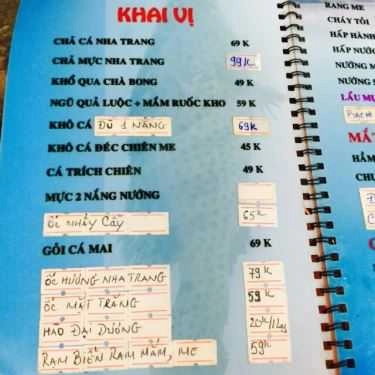 KHAI VỊ
CHẢ CÁ NHA TRANG 69 K
CHẢ MỰC NHA TRANG 99K
KHỔ QUA CHÀ BONG 49 K
NGŨ QUẢ LUỘC + MẮM RUỐC KHO 59 K
KHÔ CÁ ĐÙ 1 NẮNG 69K
KHÔ CÁ ĐÉC CHIÊN ME 45 K
CÁ TRÍCH CHIÊN 49 K
MỰC 2 NẮNG NƯỚNG
ỐC NHẢY CÂY 65K
GỎI CÁ MAI 69 K
ỐC HƯƠNG NHA TRANG 79K
ỐC MẶT TRĂNG 59K
HÀO ĐẠI DƯƠNG
RAM BIỂN RAM MẮM, ME 59K
RANG ME
CHÁY TỎI
HẤP HÀNH
HẤP
NƯỚNG
NƯỚNG
LẨU
MẮ
HẦM